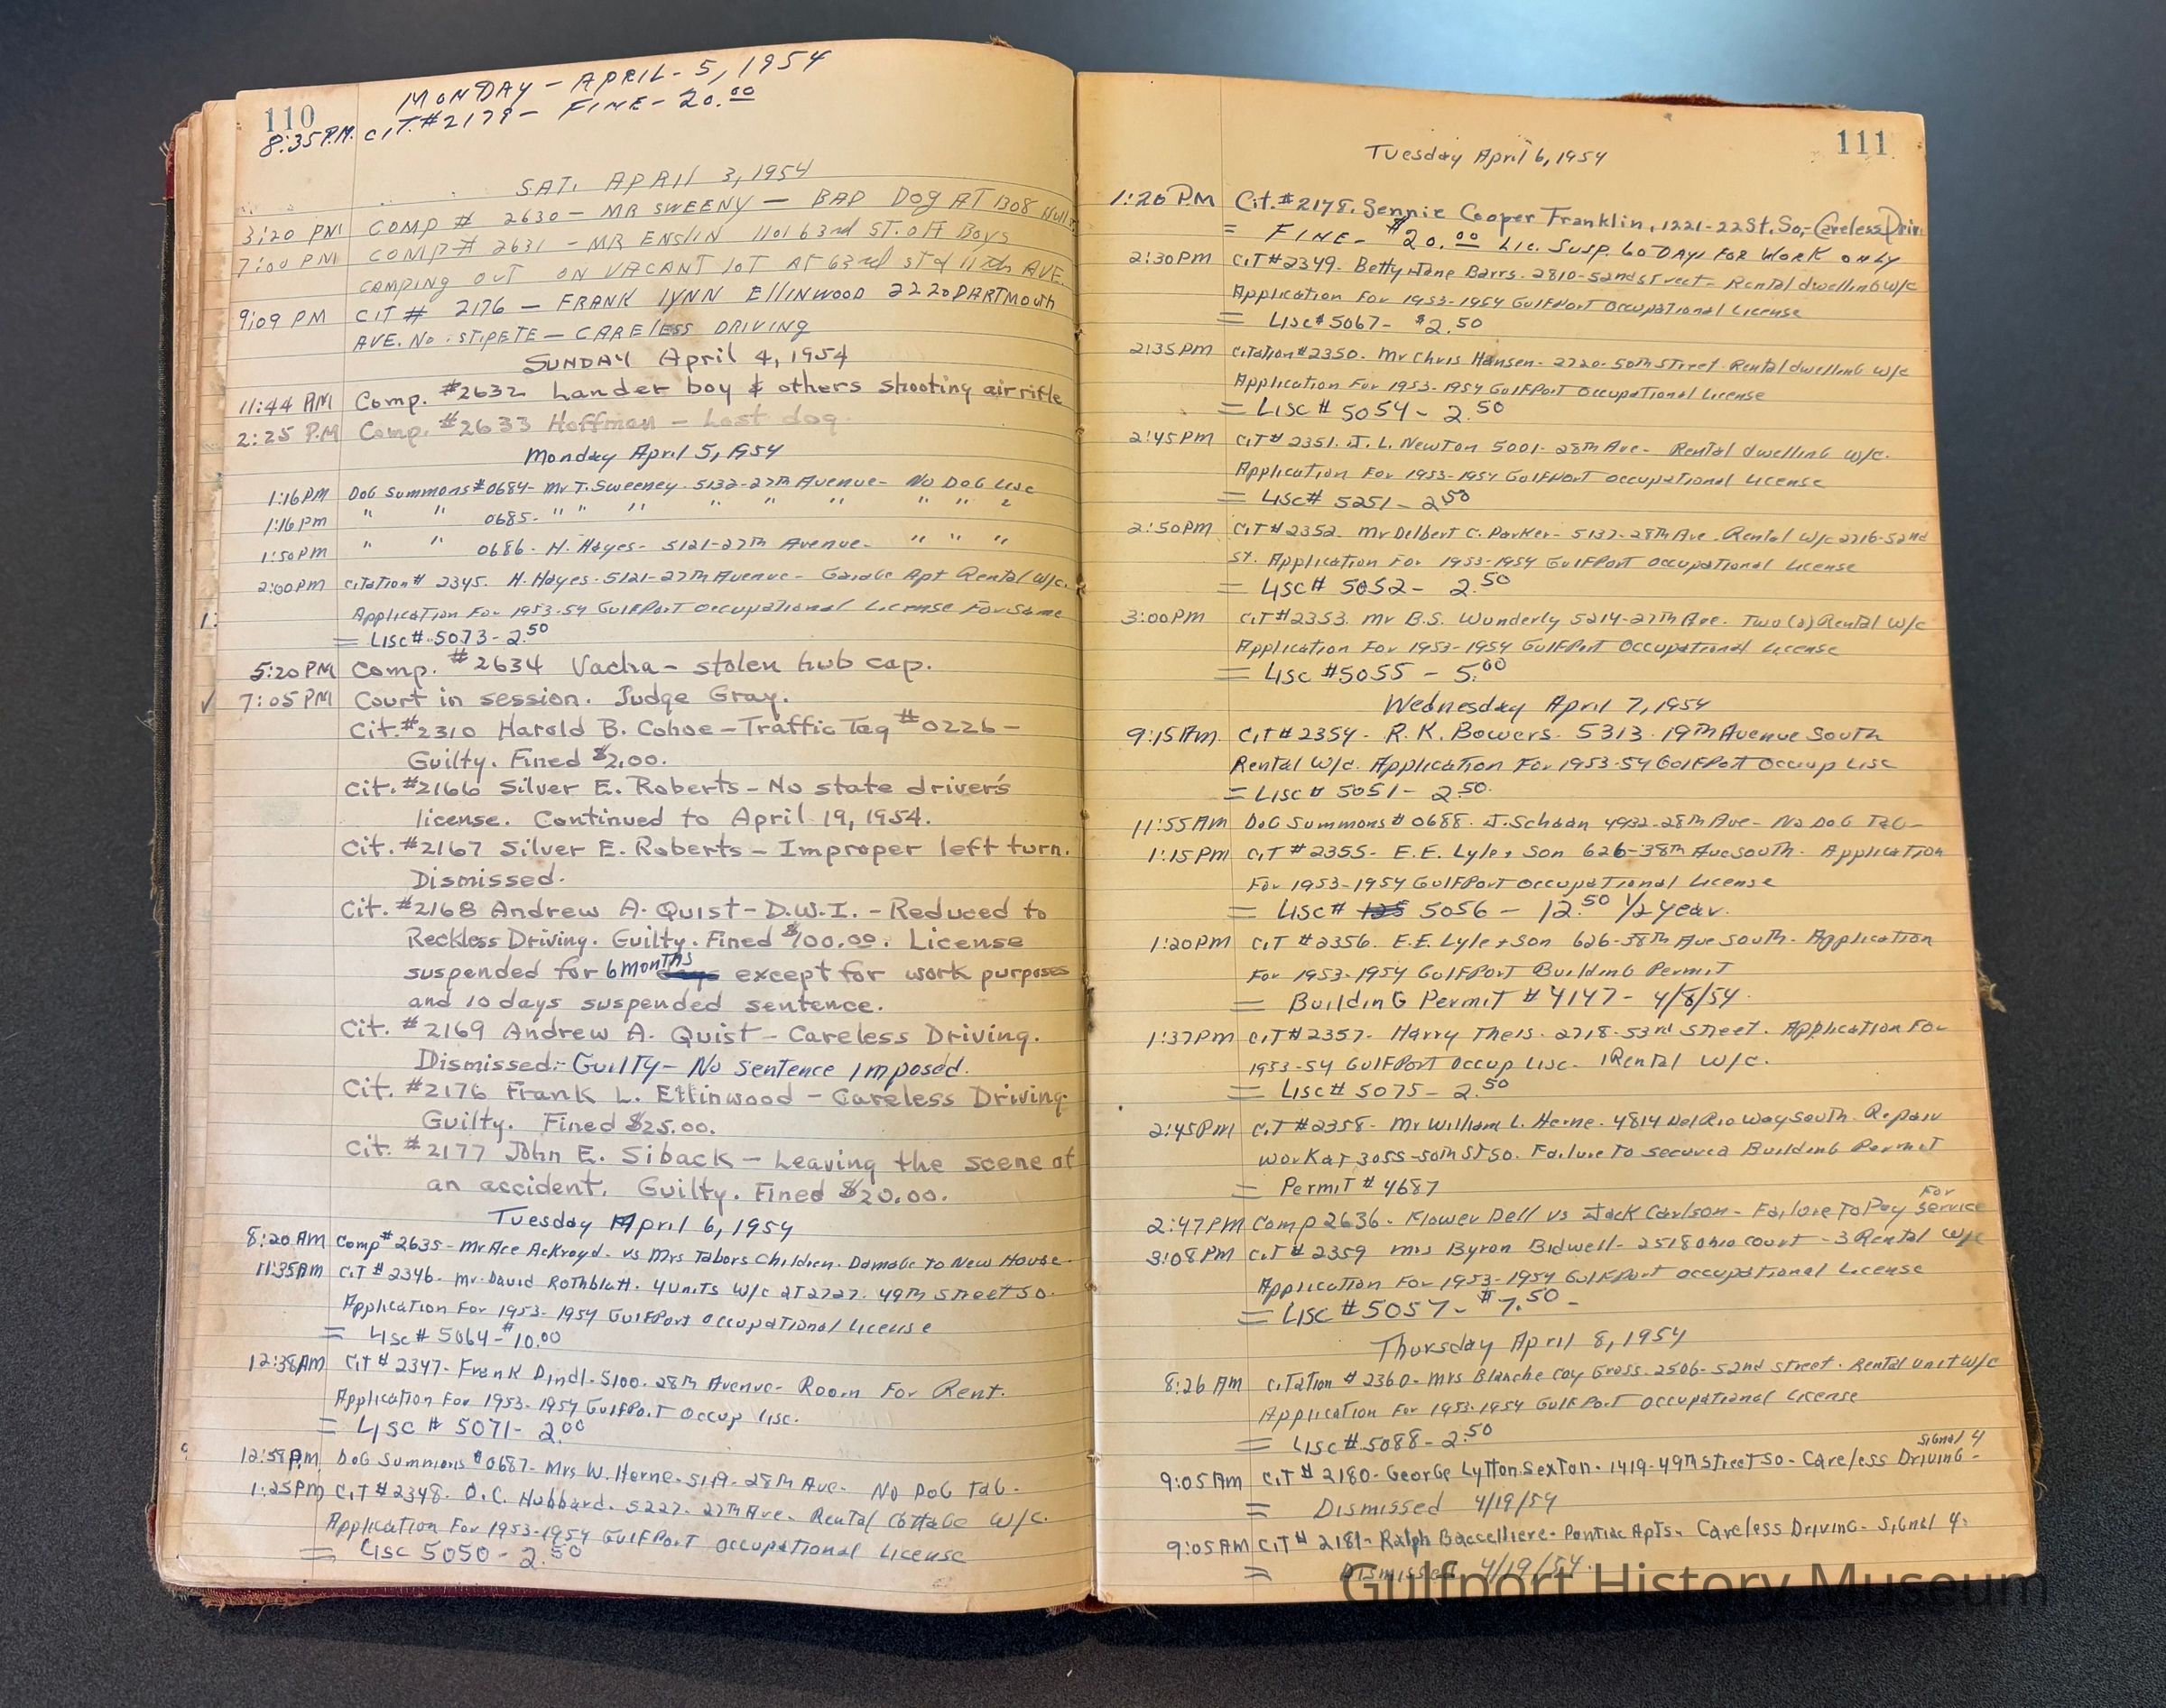 110
MONDAY - APRIL - 5, 1954
8:35 P.M. CIT. #2179 - FINE - 20.00
SAT. APRIL 3, 1954
3:20 PM COMP # 2630 - MR SWEENY - BAD DOG AT 1308
7:00 PM COMP # 2631 - MR ENSLIN 1101 63rd ST. OFF BOYS
CAMPING OUT ON VACANT LOT AT 63rd ST & 11th AVE.
9:09 PM CIT # 2176 - FRANK LYNN ELLINWOOD 2220 DARTMOUTH
AVE. NO. ST. PETE - CARELESS DRIVING
SUNDAY April 4, 1954
11:44 AM Comp. #2632 Lander boy & others shooting air rifle
2:25 P.M Comp. #2633 Hoffman - Lost dog.
Monday April 5, 1954
1:16 PM DOG Summons #0684 - Mr T. Sweeney. 5132-27th Avenue - No DOG Lisc
1:16 pm " " 0685 - " " " " " " " " "
1:50 PM " " 0686 - H. Hayes - 5121-27th Avenue - " " "
2:00 PM Citation # 2345. H. Hayes - 5121-27th Avenue - Garage Apt Rental W/c.
Application For 1953-54 GulfPort Occupational License For Same
= Lisc# 5073 - 2.50
5:20 PM Comp. #2634 Vacha - stolen hub cap.
✓ 7:05 PM Court in session. Judge Gray.
Cit. #2310 Harold B. Cohoe - Traffic Tag #0226 -
Guilty. Fined $2.00.
Cit. #2166 Silver E. Roberts - No state driver's
license. Continued to April 19, 1954.
Cit. #2167 Silver E. Roberts - Improper left turn.
Dismissed.
Cit. #2168 Andrew A. Quist - D.W.I. - Reduced to
Reckless Driving. Guilty. Fined $100.00. License
suspended for 6 months days except for work purposes
and 10 days suspended sentence.
Cit. #2169 Andrew A. Quist - Careless Driving.
Dismissed - Guilty - No Sentence Imposed.
Cit. #2176 Frank L. Ellinwood - Careless Driving.
Guilty. Fined $25.00.
Cit. #2177 John E. Siback - Leaving the scene of
an accident. Guilty. Fined $20.00.
Tuesday April 6, 1954
8:20 AM Comp #2635 - Mr Ace Ackroyd - vs Mrs Tabors Children. Damage To New House.
11:35 AM CIT # 2346 - Mr David Rothblatt. 4 Units W/c at 2727. 49th Street So.
Application For 1953-1954 GulfPort Occupational License
= Lisc # 5064 - $10.00
12:38 AM CIT # 2347 - Frank Dindl - 5100. 28th Avenue - Room For Rent.
Application For 1953-1954 GulfPort Occup Lisc.
= Lisc # 5071 - 2.00
12:59 P.M. DOG Summons #0687 - Mrs W. Herne - 5119-28th Ave. No DOG Tag.
1:25 PM CIT # 2348. O.C. Hubbard. 5227-27th Ave. Rental Cottage W/c.
Application For 1953-1954 GulfPort Occupational License
= Lisc 5050 - 2.50
111
Tuesday April 6, 1954
1:26 PM Cit. #2178. Jennie Cooper Franklin, 1221-22 St. So, - Careless Driv.
= FINE - $20.00 LIC. SUSP. 60 DAYS FOR WORK ONLY
2:30 PM CIT #2349. Betty Jane Barrs. 2810-52nd Street - Rental dwelling W/c
Application For 1953-1954 GulfPort Occupational License
= Lisc# 5067 - $2.50
2:35 PM Citation #2350. Mr Chris Hansen - 2720-50th Street. Rental dwelling W/c
Application For 1953-1954 GulfPort Occupational License
= Lisc # 5054 - 2.50
2:45 PM CIT # 2351. J. L. Newton 5001-28th Ave - Rental dwelling W/c.
Application For 1953-1954 GulfPort Occupational License
= Lisc# 5251 - 2.50
2:50 PM CIT # 2352. Mr Delbert C. Parker - 5137-28th Ave. Rental W/c 2716-52nd
St. Application For 1953-1954 GulfPort Occupational License
= Lisc# 5052 - 2.50
3:00 PM CIT #2353. Mr B.S. Wunderly 5214-27th Ave. Two (2) Rental W/c
Application For 1953-1954 GulfPort Occupational License
= Lisc #5055 - 5.00
Wednesday April 7, 1954
9:15 AM. CIT # 2354 - R. K. Bowers. 5313. 19th Avenue South
Rental W/c. Application For 1953-54 GulfPort Occup Lisc
= Lisc # 5051 - 2.50.
11:55 AM DOG Summons # 0688. J. Schaan 4932-28th Ave - No DOG Tag -
1:15 PM CIT # 2355 - E.E. Lyle + Son 626-38th Ave South - Application
For 1953-1954 GulfPort Occupational License
= Lisc# 125 5056 - 12.50 1/2 year.
1:20 PM CIT # 2356. E.E. Lyle + Son 626-38th Ave South - Application
For 1953-1954 GulfPort Building Permit
= Building Permit # 4147 - 4/8/54.
1:37 PM CIT # 2357 - Harry Theis. 2718-53rd Street. Application For
1953-54 GulfPort Occup Lisc - 1 Rental W/c.
= Lisc# 5075 - 2.50
2:45 PM CIT #2358 - Mr William L. Herne. 4814 Del Rio Way South. Repair
Work at 3055-50th St So. Failure To secured Building Permit
= Permit # 4687
2:47 PM Comp 2636 - Flower Dell vs Jack Carlson - Failure To Pay For Service
3:08 PM CIT # 2359 Mrs Byron Bidwell - 2518 Ohio Court - 3 Rental W/c
Application For 1953-1954 GulfPort Occupational License
= Lisc #5057 - $7.50 -
Thursday April 8, 1954
8:26 AM Citation # 2360 - Mrs Blanche Coy Gross. 2506-52nd Street. Rental Unit W/c
Application For 1953-1954 GulfPort Occupational License
= Lisc #5088 - 2.50
9:05 AM CIT # 2180 - George Lytton Sexton - 1419-49th Street So - Careless Driving - Signal 4
= Dismissed 4/19/54
9:05 AM CIT # 2181 - Ralph Baccelliere - Pontiac Apts. Careless Driving - Signal 4.
= Dismissed 4/19/54.
Gulfport History Museum